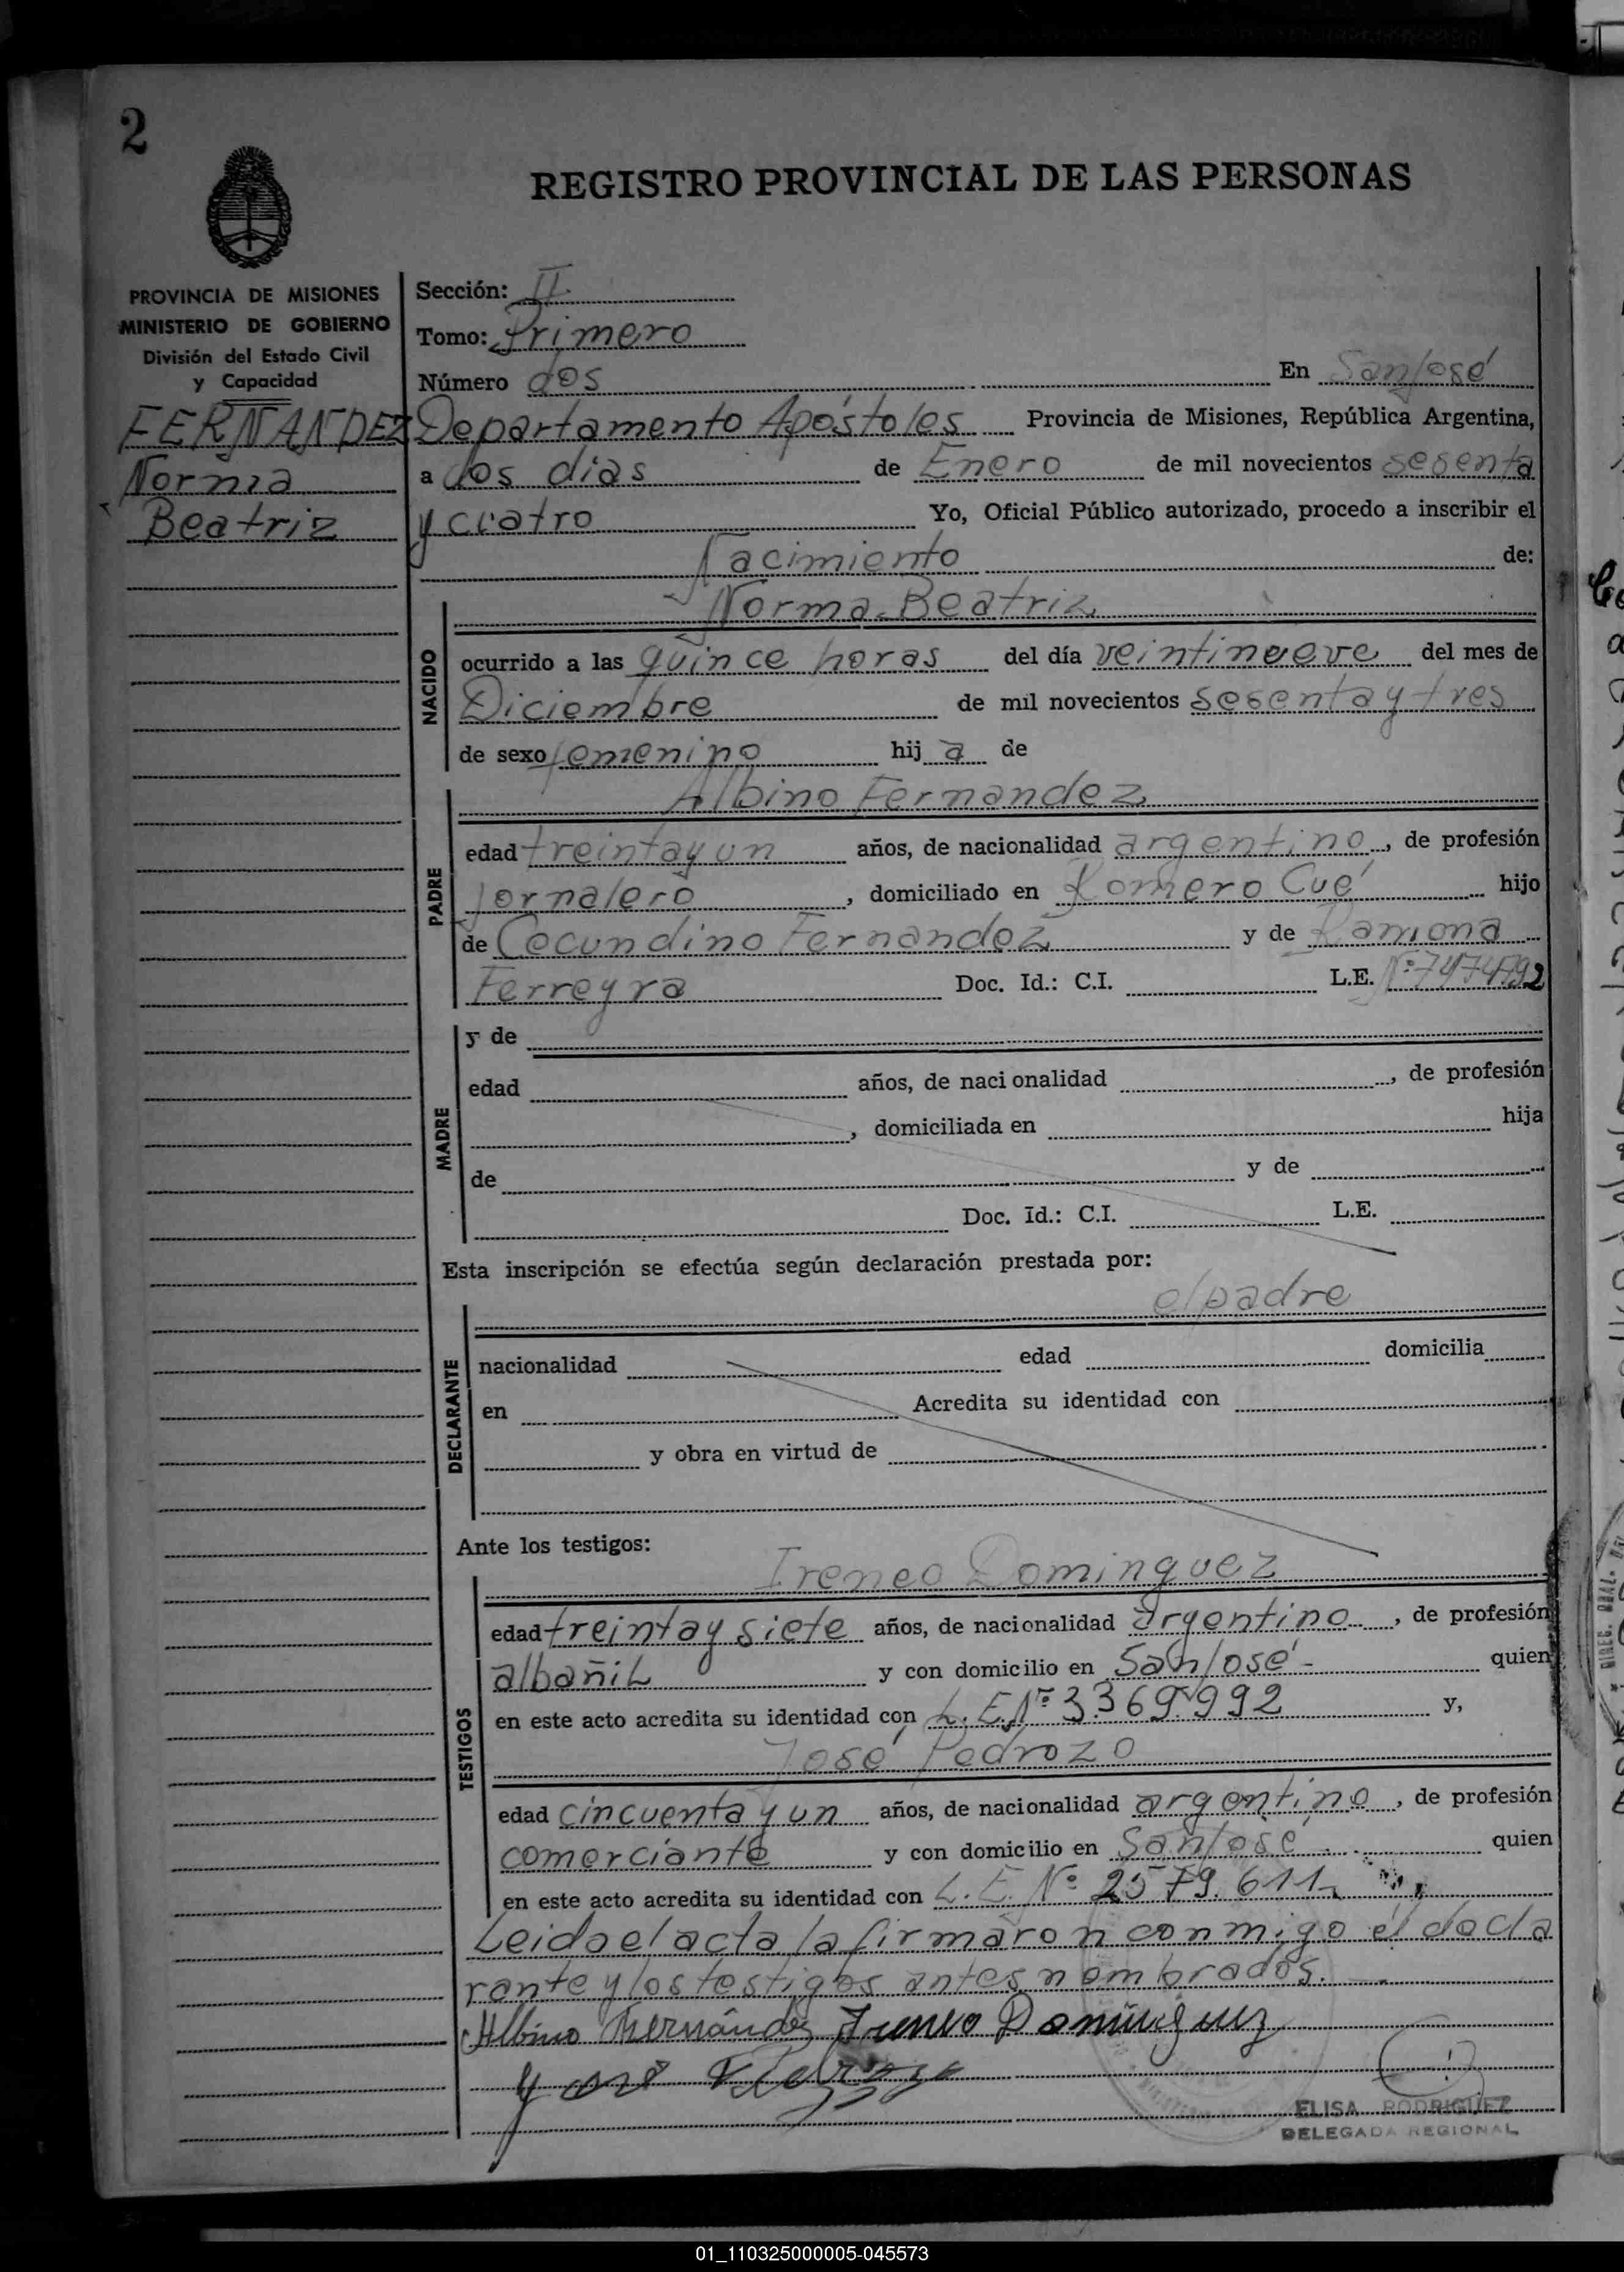 2
REGISTRO PROVINCIAL DE LAS PERSONAS
PROVINCIA DE MISIONES
MINISTERIO DE GOBIERNO
División del Estado Civil
y Capacidad
FERNANDEZ
Norma
Beatriz
Sección: II
Tomo: Primero
Número dos En San José
Departamento Apóstoles Provincia de Misiones, República Argentina,
a dos dias de Enero de mil novecientos sesenta
y cuatro Yo, Oficial Público autorizado, procedo a inscribir el
Nacimiento de:
NACIDO
Norma Beatriz
ocurrido a las quince horas del día veintinueve del mes de
Diciembre de mil novecientos sesenta y tres
de sexo femenino hij a de
PADRE
Albino Fernandez
edad treinta y un años, de nacionalidad argentino, de profesión
jornalero, domiciliado en Romero Cué hijo
de Cecundino Fernandez y de Ramona
Ferreyra Doc. Id.: C.I. L.E. Nº 7474792
MADRE
y de
edad años, de naci onalidad , de profesión
, domiciliada en hija
de y de
Doc. Id.: C.I. L.E.
Esta inscripción se efectúa según declaración prestada por:
el padre
DECLARANTE
nacionalidad edad domicilia
en Acredita su identidad con
y obra en virtud de
Ante los testigos:
TESTIGOS
Ireneo Dominguez
edad treinta y siete años, de nacionalidad argentino, de profesión
albañil y con domicilio en San José - quien
en este acto acredita su identidad con L.E.Nº 3.369.992 y,
José Pedrozo
edad cincuenta y un años, de nacionalidad argentino, de profesión
comerciante y con domicilio en San José quien
en este acto acredita su identidad con L.E. Nº 2579.611
Leida el acta la firmaron conmigo el decla
rante y los testigos antes nombrados.
Albino Fernández Ireneo Dominguez
José Pedrozo
ELISA RODRIGUEZ
DELEGADA REGIONAL
01_110325000005-045573